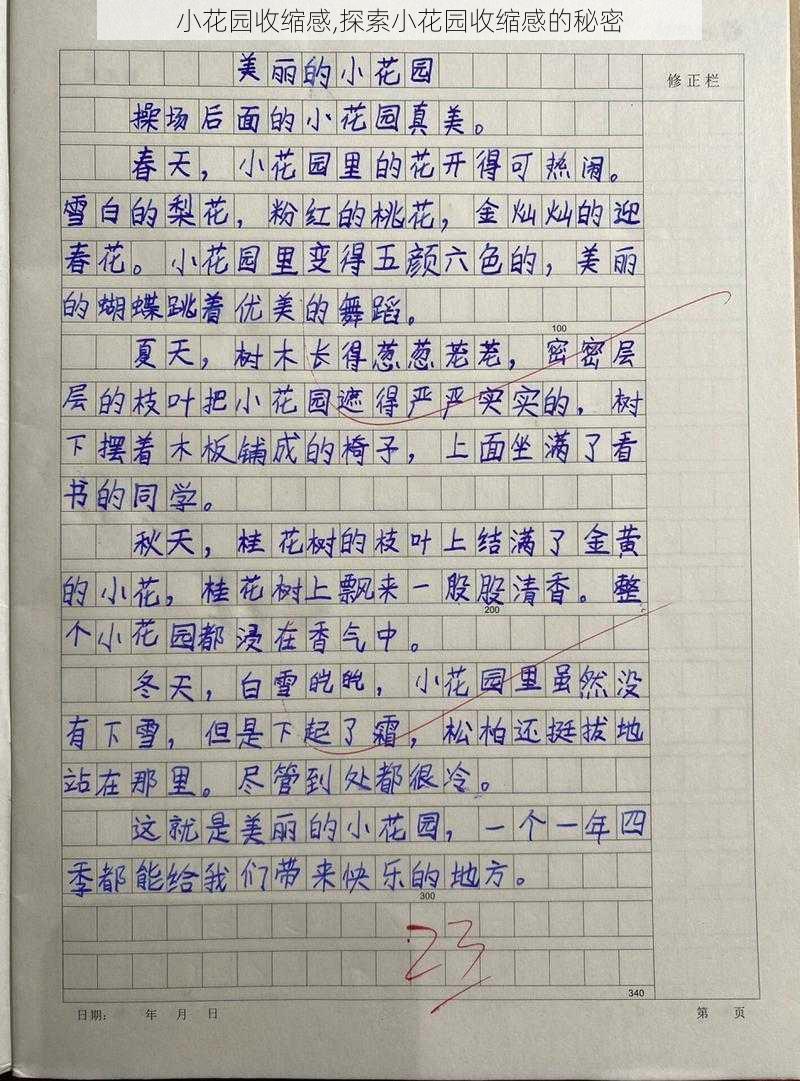 小花园收缩感,探索小花园收缩感的秘密
美丽的小花园
修正栏
操场后面的小花园真美。
春天，小花园里的花开得可热闹。
雪白的梨花，粉红的桃花，金灿灿的迎
春花。小花园里变得五颜六色的，美丽
的蝴蝶跳着优美的舞蹈。
100
夏天，树木长得葱葱茏茏，密密层
层的枝叶把小花园遮得严严实实的，树
下摆着木板铺成的椅子，上面坐满了看
书的同学。
秋天，桂花树的枝叶上结满了金黄
的小花，桂花树上飘来一股股清香。整
200
个小花园都浸在香气中。
冬天，白雪皑皑，小花园里虽然没
有下雪，但是下起了霜，松柏还挺拔地
站在那里。尽管到处都很冷。
这就是美丽的小花园，一个一年四
季都能给我们带来快乐的地方。
300
23
340
日期： 年 月 日 第 页